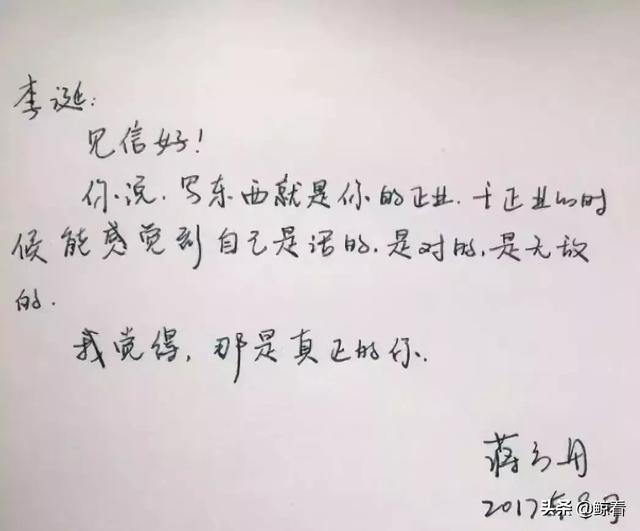 李诞:
见信好!
你说,写东西就是你的正业.干正业的时
候能感觉到自己是活的,是对的,是无敌
的.
我觉得,那是真正的你.
蒋方舟
2017年8月
头条 @鲸看